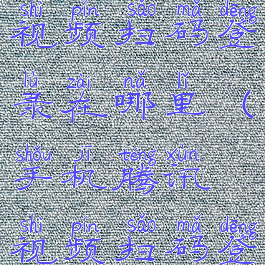 shì pín sǎo mǎ dēng
视频扫码登
lù zài nǎ lǐ
录在哪里（
shǒu jī téng xùn
手机腾讯
shì pín sǎo mǎ dēng
视频扫码登